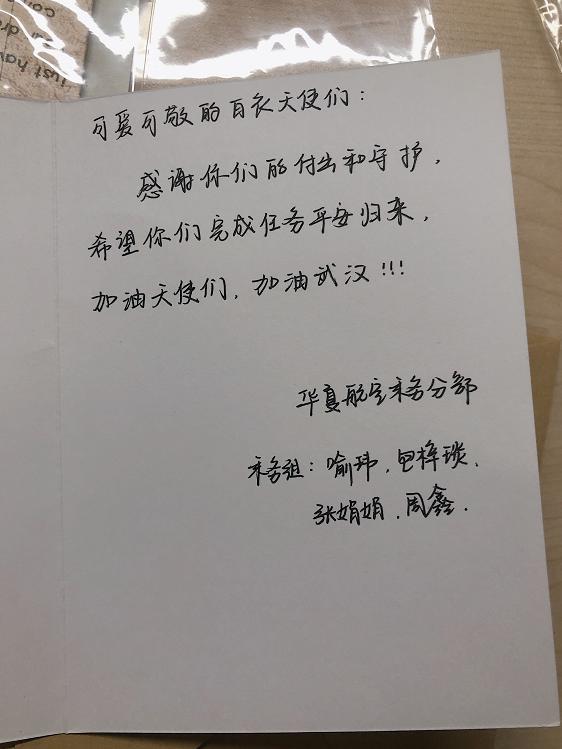 可爱可敬的白衣天使们：
感谢你们的付出和守护，
希望你们完成任务平安归来，
加油天使们，加油武汉!!!
华夏航空乘务分部
乘务组：喻玮，
张娟娟，周鑫．